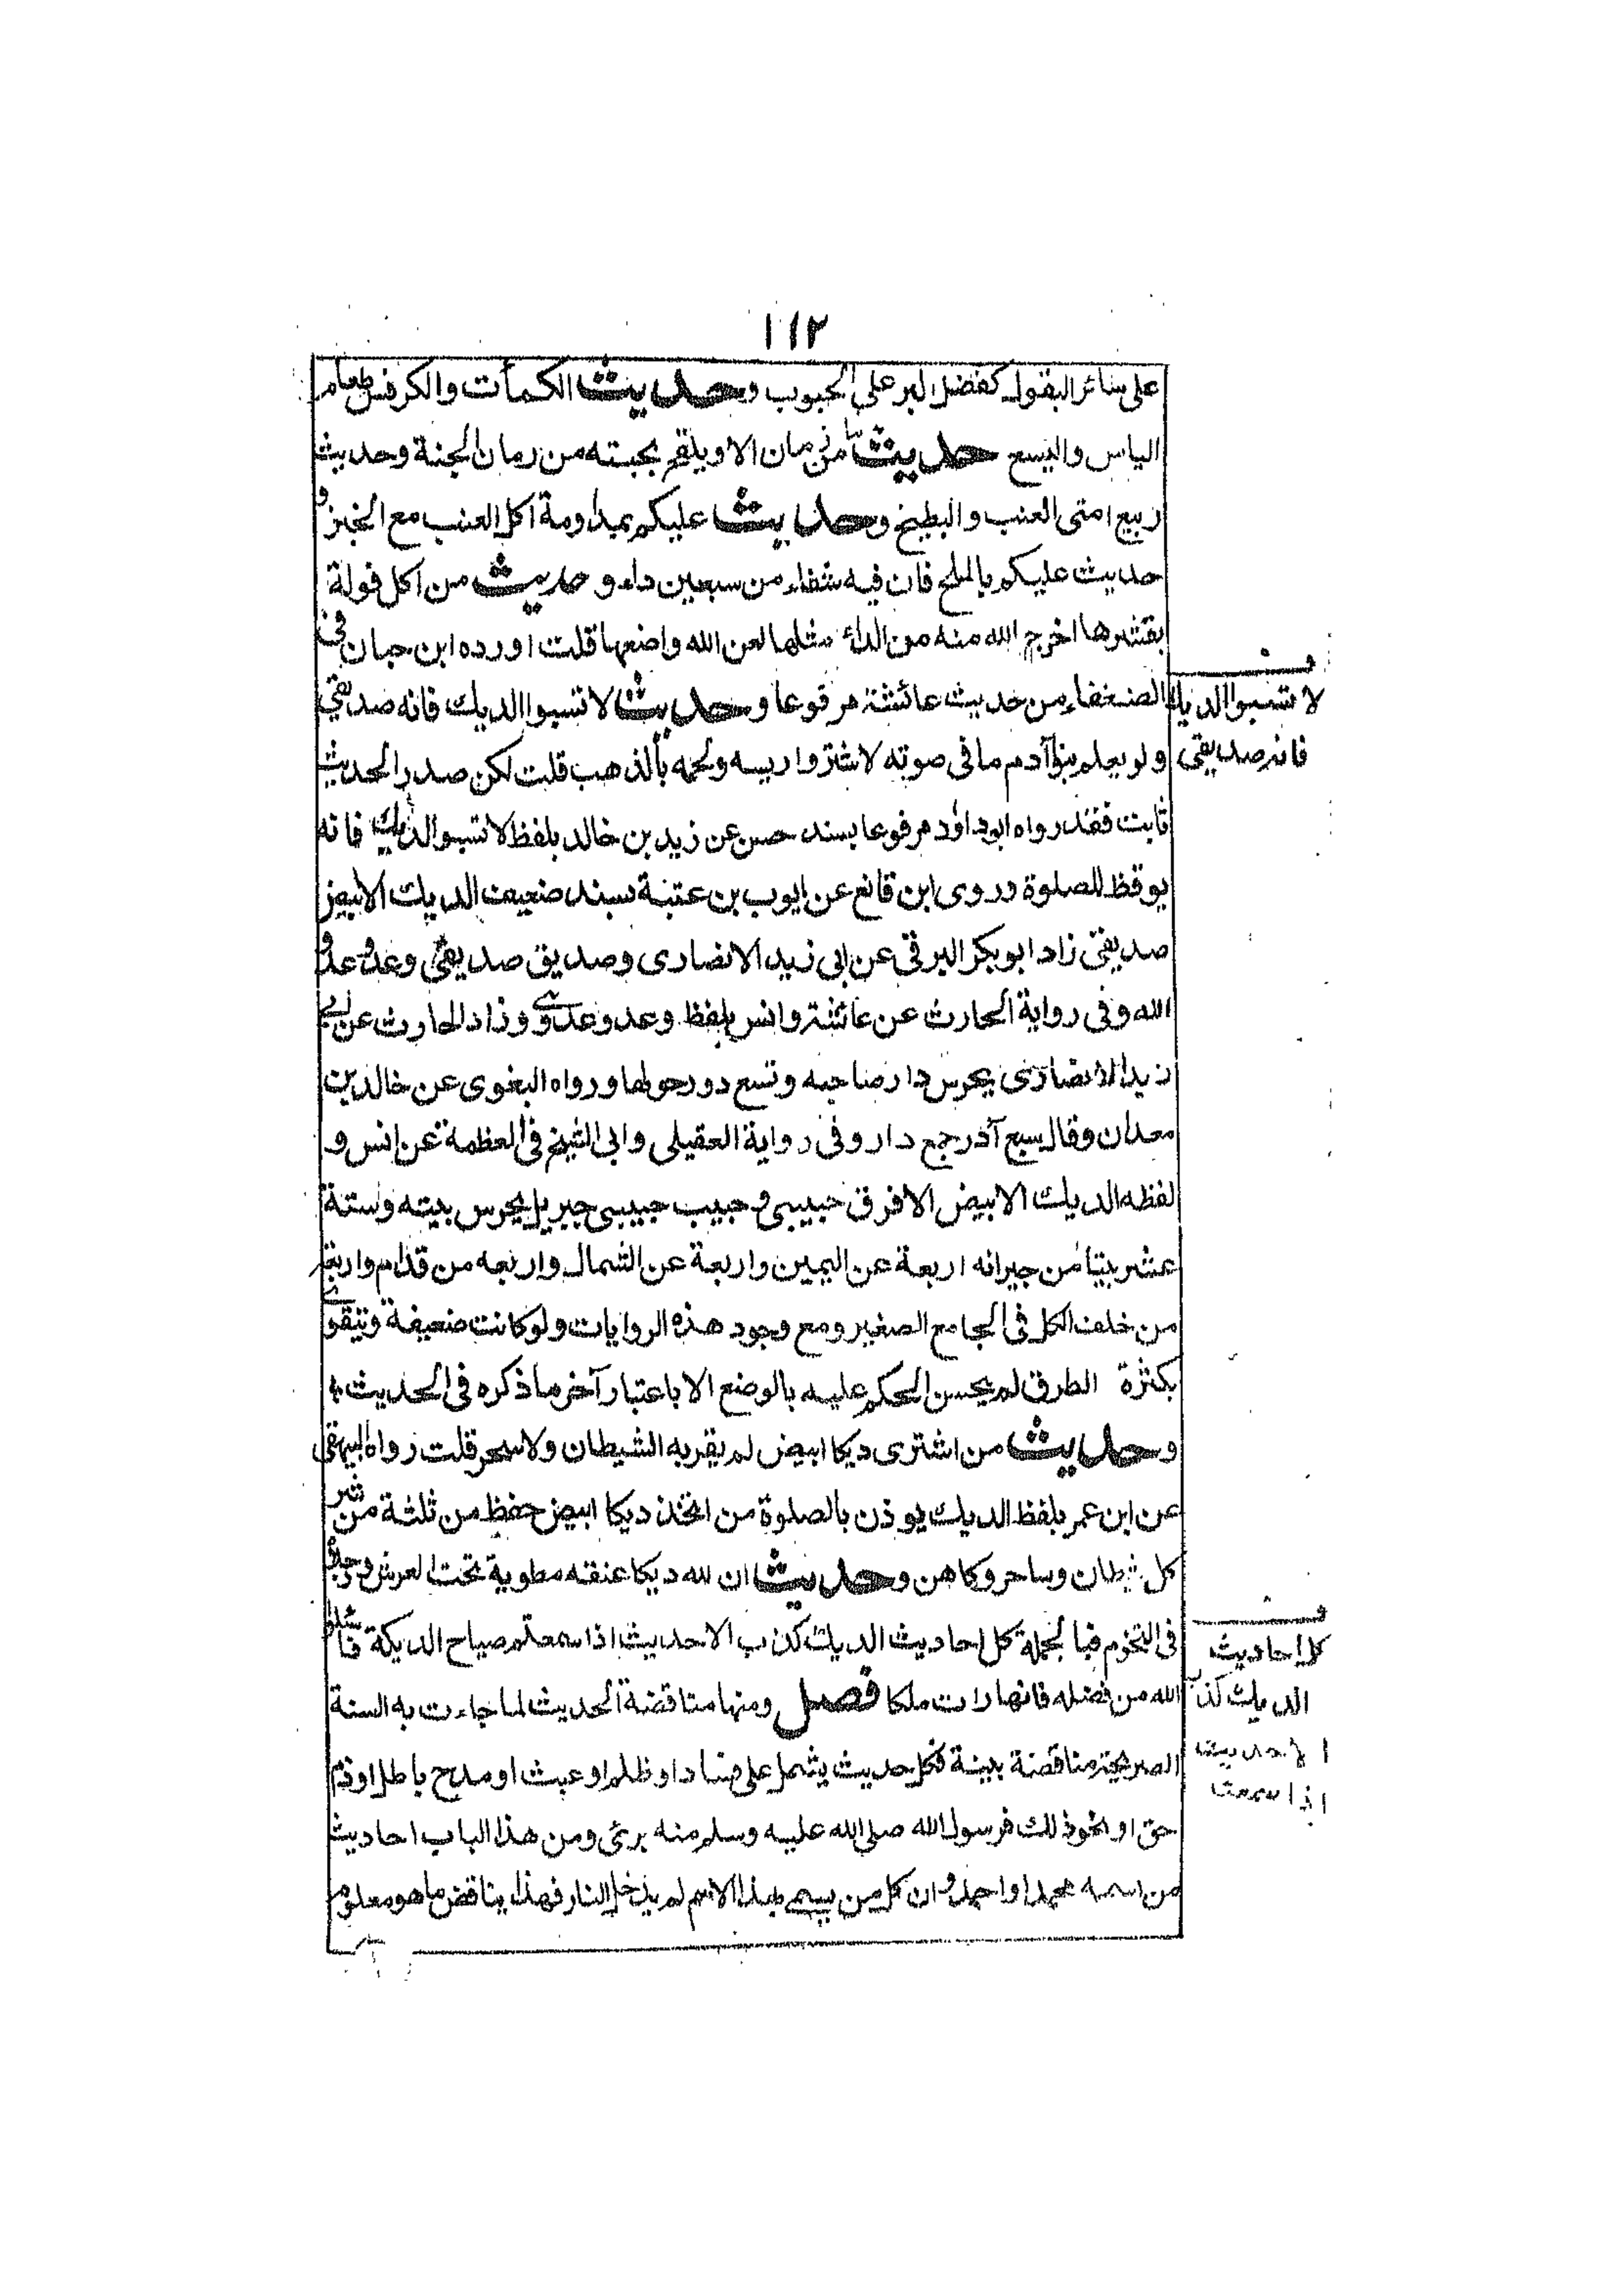 ١١٢
على سائر البقول كفضل البر على الحبوب وحديث الكمأت والكرفس طعام
الياس واليسع حديث ما من رمان الا ويلقم بحبته من رمان الجنة وحديث
ربيع امتى العنب والبطيخ وحديث عليكم بمداومة اكل العنب مع الخبز و
حديث عليكم بالملح فان فيه شفاء من سبعين داء وحديث من اكل فولة
بقشرها اخرج الله منه من الداء مثلها لعن الله واضعها قلت اورده ابن حبان فى
الضعفاء من حديث عائشة مرفوعا وحديث لا تسبوا الديك فانه صديقى
ولو يعلم بنو آدم ما فى صوته لاشتروا ريسه ولحمه بالذهب قلت لكن صدر الحديث
ثابت فقد رواه ابو داؤد مرفوعا بسند حسن عن زيد بن خالد بلفظ لا تسبوا الديك فانه
يوقظ للصلوة وروى ابن قانع عن ايوب بن عتبة بسند ضعيف الديك الابيض
صديقى زاد ابو بكر البرقى عن ابى زيد الانصارى وصديق صديقى وعدو عدو
الله وفى رواية الحارث عن عائشة وانس بلفظ وعدو عدوى وزاد الحارث عن ابى
زيد الانصارى يحرس دار صاحبه وتسع دور حولها ورواه البغوى عن خالد بن
معدان وقال سبع آدر جمع دار وفى رواية العقيلى وابى الشيخ فى العظمة عن انس و
لفظه الديك الابيض الافرق حبيبى وحبيب حبيبى جبريل يحرس بيته وستة
عشر بيتا من جيرانه اربعة عن اليمين واربعة عن الشمال واربعه من قدام واربعة
من خلف الكل فى الجامع الصغير ومع وجود هذه الروايات ولو كانت ضعيفة وتتقوى
بكثرة الطرق لم يحسن الحكم عليه بالوضع الا باعتبار آخر ما ذكره فى الحديث
وحديث من اشترى ديكا ابيض لم يقربه الشيطان ولا سحر قلت رواه البيهقى
عن ابن عمر بلفظ الديك يوذن بالصلوة من اتخذ ديكا ابيض حفظ من ثلثة من شر
كل شيطان وساحر وكاهن وحديث ان لله ديكا عنقه مطوية تحت العرش ورجلاه
فى التخوم فبالجملة كل احاديث الديك كذب الا حديث اذا سمعتم صياح الديكة فاسئلوا
الله من فضله فانها رات ملكا فصل ومنها مناقضة الحديث لما جاءت به السنة
الصريحة مناقضة بينة فكل حديث يشمل على فساد او ظلم او عبث او مدح باطل او ذم
حق او نحو ذلك فرسول الله صلى الله عليه وسلم منه برئى ومن هذا الباب احاديث
من اسمه محمد او احمد وان كل من يسمى بهذا الاسم لم يدخل النار فهذا يناقض ما هو معلوم
لا تسبوا الديك
فانه صديقى
كل احاديث
الديك كذب
الا حديث
اذا سمعت